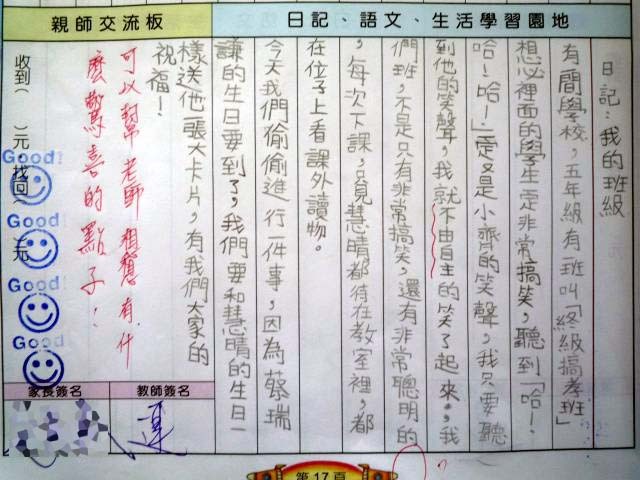 親師交流板
日記、語文、生活學習園地
日記：我的班級
有間學校，五年級有班叫「終級搞孝班」
想必裡面的學生一定非常搞笑，聽到「哈！
哈！哈！」一定又是小齊的笑聲，我只要聽
到他的笑聲，我就不由自主的笑了起來。我
們班，不是只有非常搞笑，還有非常聰明的
，每次下課，只見慧晴都待在教室裡，都
在位子上看課外讀物。
今天我們偷偷進行一件事，因為蔡瑞
謙的生日要到了，我們要和慧晴的生日一
樣送他一張大卡片，有我們大家的
祝福！
可以幫老師想想有什
麼驚喜的點子！
收到（ ）元 找回（ ）元
Good!
Good!
Good!
Good!
家長簽名
教師簽名
蓮
第17頁